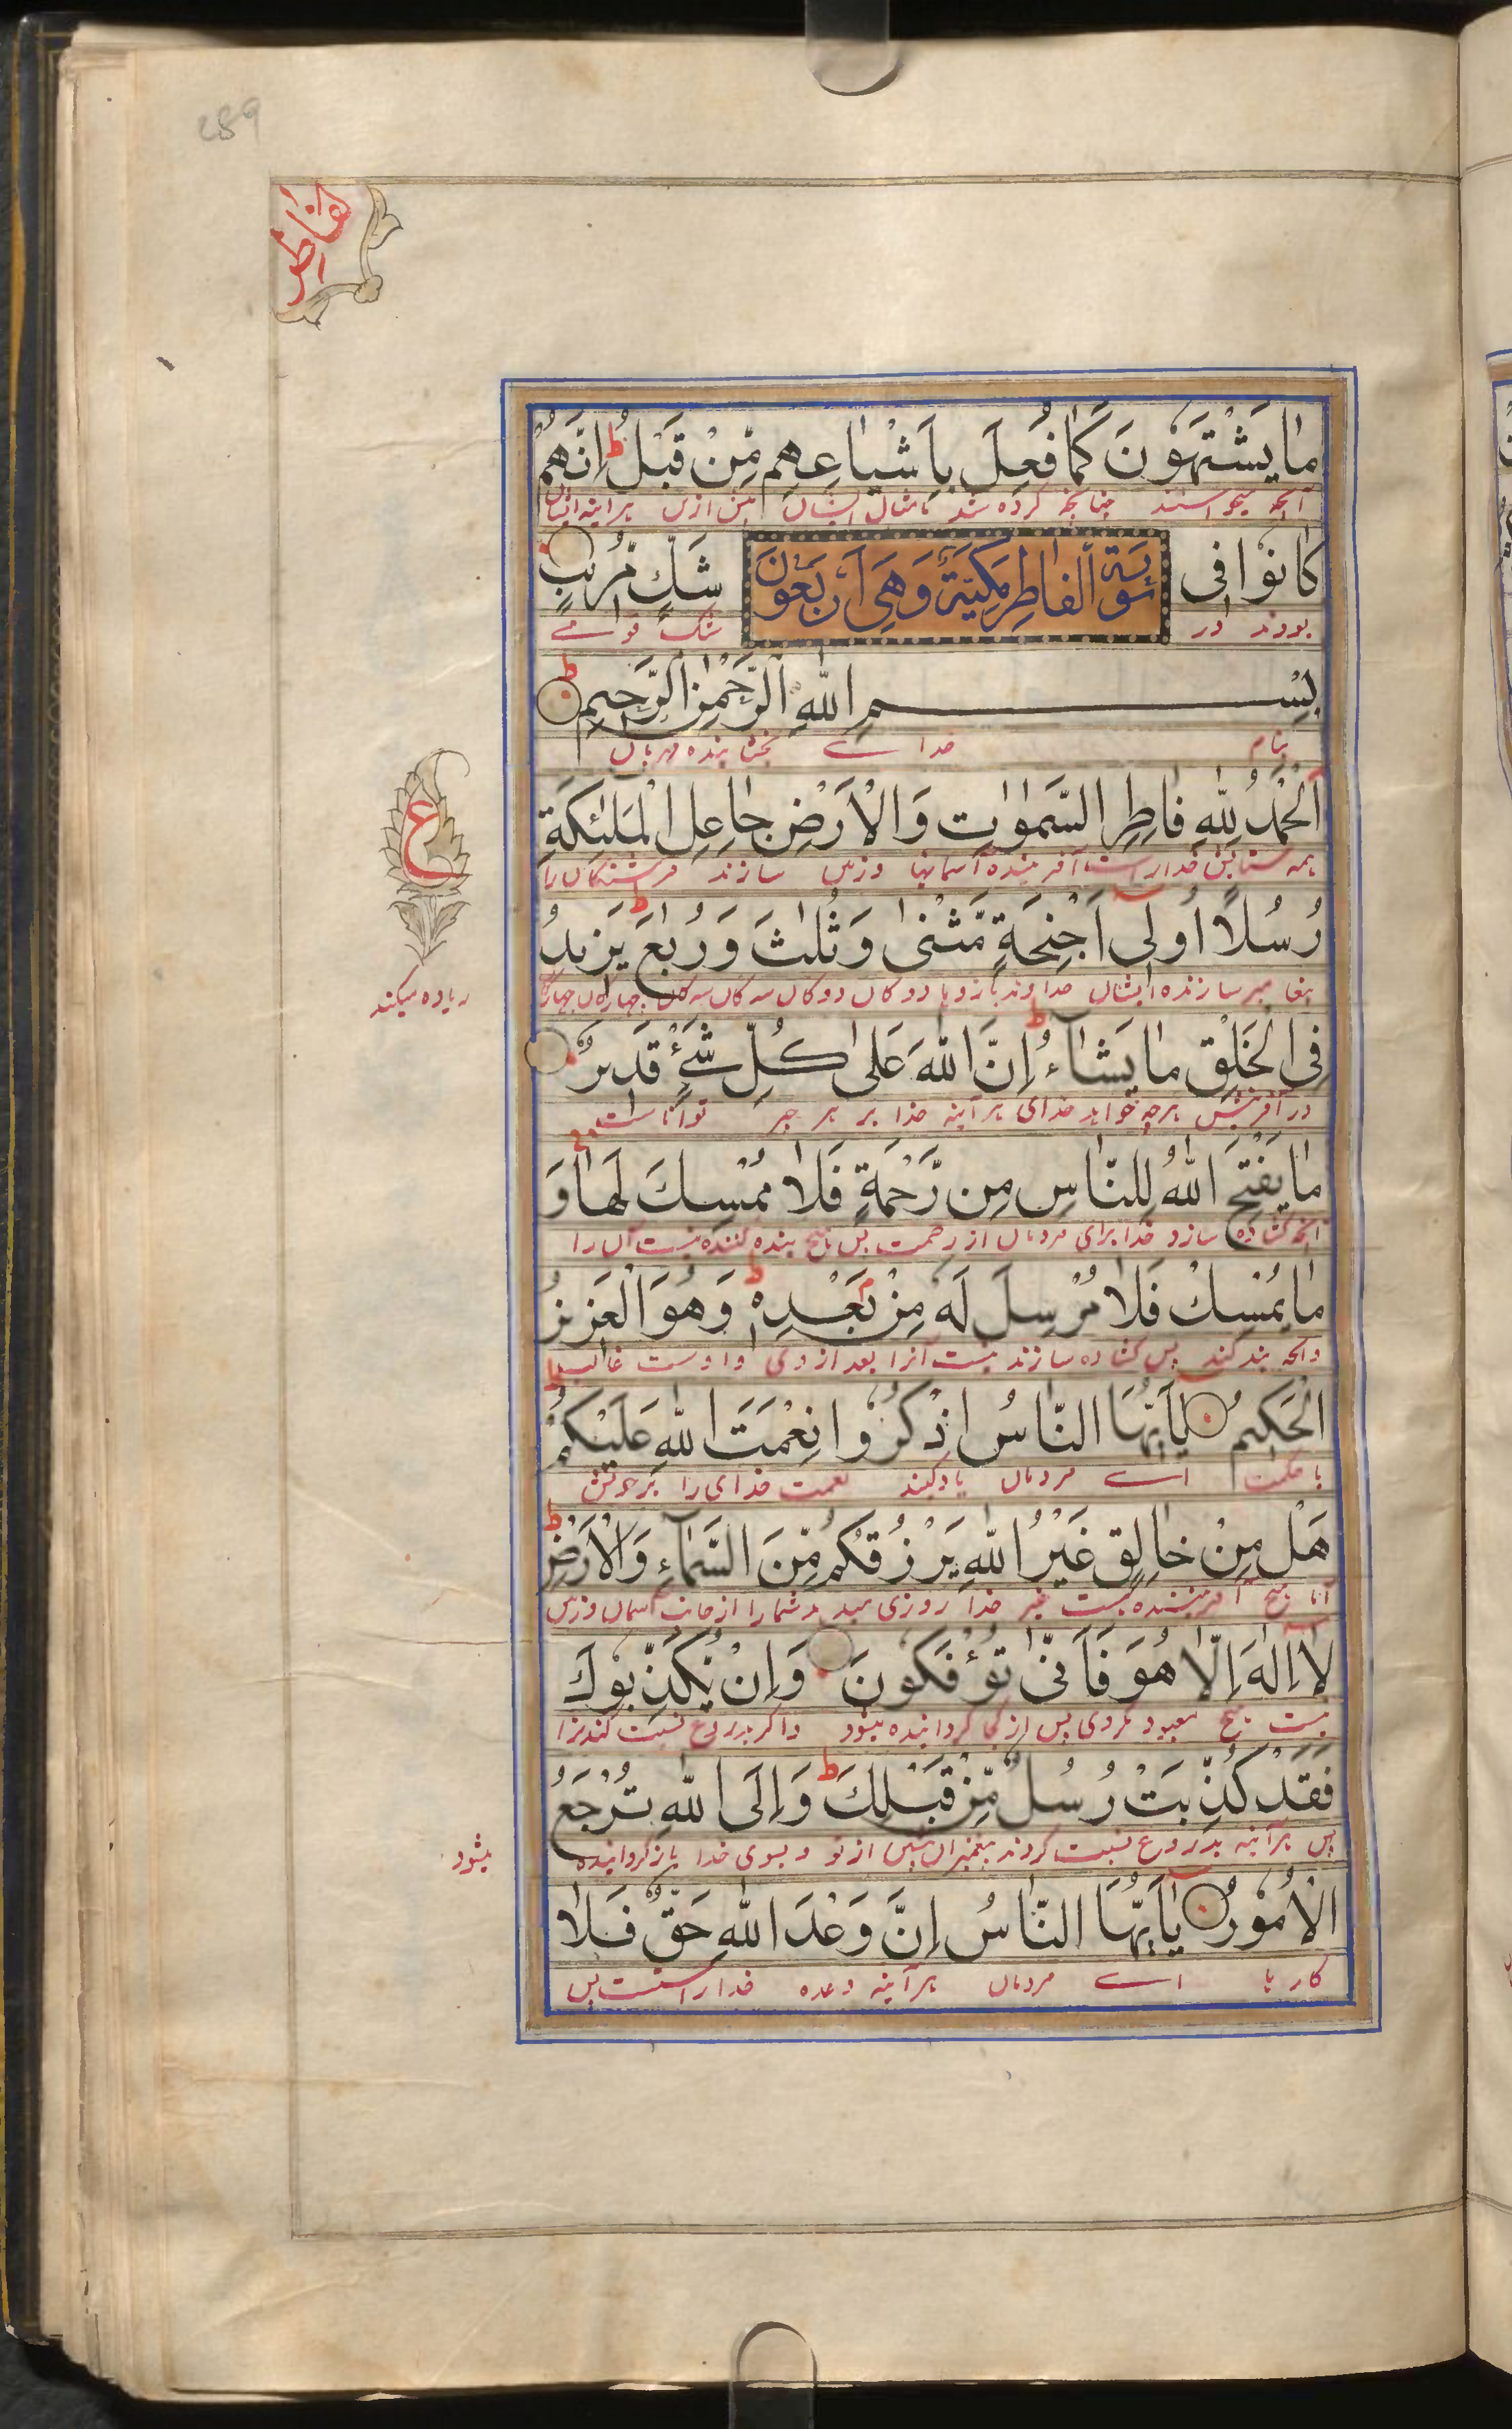 289
الفاطر
مَا يَشْتَهُونَ كَمَا فُعِلَ بِاَشْيَاعِهِم مِّنْ قَبْلُ ط اِنَّهُمْ
آنچه میخواستند چنانچه کرده شد بامثال ایشان پیش ازین هر آینه ایشان
كَانُوْا فِى
شَكٍّ مُّرِيْبٍ
سُوْرَةُ الْفَاطِرِ مَكِيَّةٌ وَهِىَ اَرْبَعُوْنَ
بودند در
شک قوے
بِسْمِ اللّٰهِ الرَّحْمٰنِ الرَّحِيْمِ ط
بنام خداے بخشاینده مهربان
اَلْحَمْدُ لِلّٰهِ فَاطِرِ السَّمٰوٰتِ وَالْاَرْضِ جَاعِلِ الْمَلٰئِكَةِ
همه ستایش خدا راست آفریننده آسمانها و زمین سازنده فرشتگان را
ع
رُسُلًا اُولِى اَجْنِحَةٍ مَّثْنٰى وَثُلٰثَ وَرُبٰعَ ط يَزِيْدُ
پیغامبر سازنده ایشان خداوند بازوها دوگان دوگان سه گان سه گان چهارگان چهارگان
زیاده میکند
فِى الْخَلْقِ مَا يَشَاءُ ط اِنَّ اللّٰهَ عَلٰى كُلِّ شَىْءٍ قَدِيْرٌ
در آفرینش هرچه خواهد خدای هر آینه خدا بر هر چیز تواناست
مَا يَفْتَحِ اللّٰهُ لِلنَّاسِ مِن رَّحْمَةٍ فَلَا مُمْسِكَ لَهَا ج وَ
آنچه کشاده سازد خدا برای مردمان از رحمت پس هیچ بنده کننده نیست آن را
مَا يُمْسِكْ فَلَا مُرْسِلَ لَهٗ مِنْ بَعْدِهٖ ط وَهُوَ الْعَزِيْزُ
وآنچه بند کند پس کشاده سازنده نیست آنرا بعد از وی و اوست غالب
الْحَكِيْمُ يَا اَيُّهَا النَّاسُ اذْكُرُوْا نِعْمَتَ اللّٰهِ عَلَيْكُمْ ط
با حکمت اے مردمان یاد کنید نعمت خدای را بر خویش
هَلْ مِنْ خَالِقٍ غَيْرُ اللّٰهِ يَرْزُقُكُم مِّنَ السَّمَآءِ وَالْاَرْضِ ط
آیا هیچ آفریننده هست غیر خدا روزی میدهد شما را از جانب آسمان و زمین
لَا اِلٰهَ اِلَّا هُوَ فَاَنّٰى تُؤْفَكُوْنَ وَاِنْ يُّكَذِّبُوْكَ
نیست هیچ معبود مگر وی پس از کجا گردانیده میشود واگر بدروغ نسبت کنند ترا
فَقَدْ كُذِّبَتْ رُسُلٌ مِّنْ قَبْلِكَ ط وَاِلَى اللّٰهِ تُرْجَعُ
پس هر آینه بدروغ نسبت کردند پیغمبران پیش از تو و بسوی خدا باز گردانیده
میشود
الْاُمُوْرُ يَا اَيُّهَا النَّاسُ اِنَّ وَعْدَ اللّٰهِ حَقٌّ فَلَا
کارها اے مردمان هر آینه وعده خدا راست پس